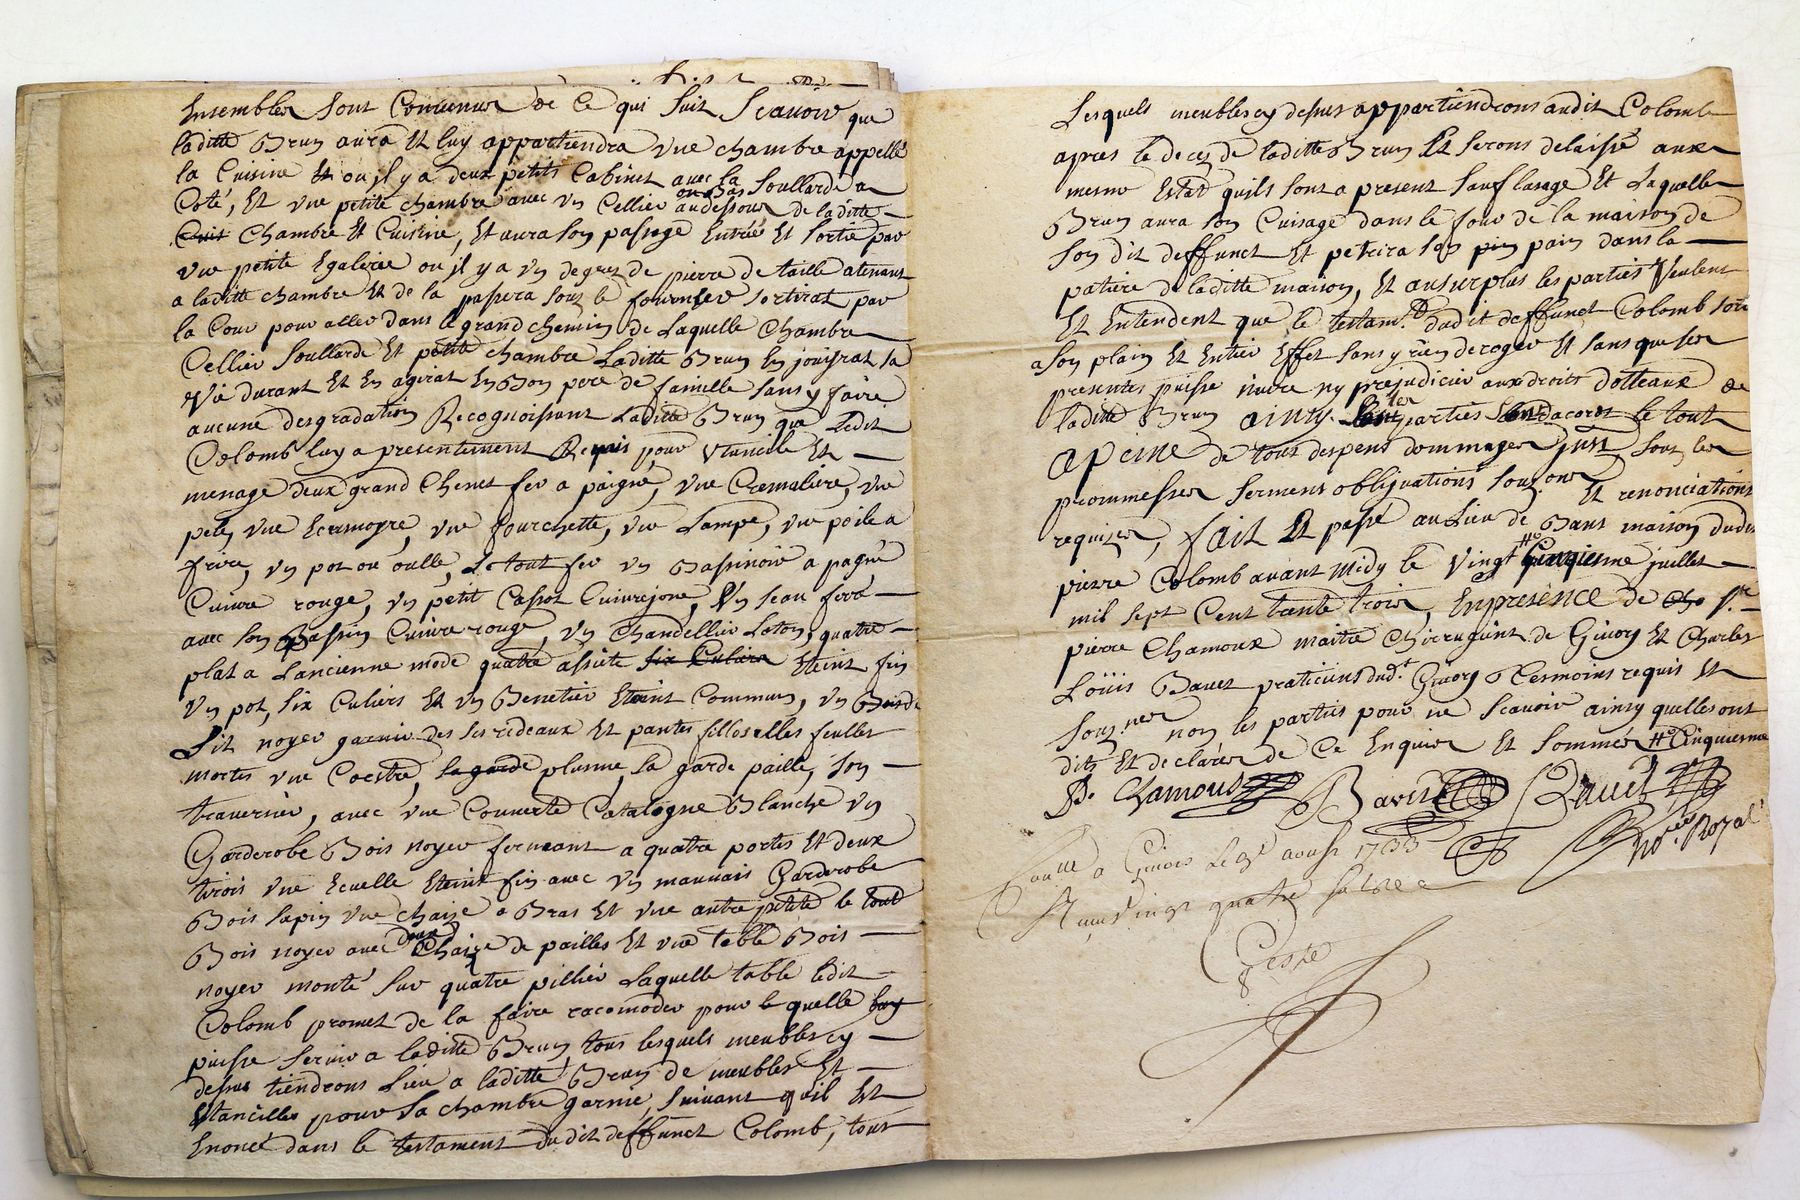 Ensembles sont Convenus de Ce qui suit Scavoir que
laditte Brun aura Et luy appartiendra vne chambre appellé
la Cuisine Et ou jl y a deux petits Cabinet avec la Soullarde a
Coté, Et vne petite chambre avec vn Cellier ou Bas au dessous de laditte
Cuis Chambre Et Cuisine, Et aura son passage Entreé Et sortie par
vne petite Egalerie ou jl y a vn degrez de pierre de taille atenant
a laditte chambre Et de la passera sous le fournier sortirat par
la Cour pour aller dans le grand chemin de Laquelle Chambre
Cellier Soullarde Et petite chambre Laditte Brun En jouisrat sa
Vie durant Et En agirat En Bon pere de famille sans y faire
aucune desgradation Recognoissant Laditte Brun que Ledit
Colomb luy a presentement Remis pour vtancile Et
menage deux grand Chenet fer a paigne, vne Cremaliere, vne
pele, vne Ecumoyre, vne fourchette, vne Lampe, vne poile a
frire, vn pot ou oulle, Le tout fer vn Bassinoir a pagne
Cuivre rouge, vn petit Cassot Cuivre jone, Vn seau feré
avec son Bassin Cuivre rouge, vn Chandellier Loton, quatre
plat a Lancienne mode quatre assiete six Culiers Eteint fin
Vn pot, six Culiers Et vn Benetier Eteint Commun, vn Bois de
Lit noyer garnie des ses rideaux Et pantes filloselles feulles
mortes vne Coestre, sa garde plume, sa garde paille, son
traversier, avec vne Couverte Catalogne Blanche vn
Garderobe Bois noyer fermant a quatre portes Et deux
tirois vne Ecuelle Eteint fin avec vn mauvais Garderobe
Bois sapin vne chaize a Bras Et vne autre petite le tout
Bois noyer avec deux Chaize de pailles Et vne table Bois
noyer monté sur quatre pillier Laquelle table ledit
Colomb promet de la faire racomoder pour le quelle luy
puisse servir a laditte Brun, tous lesquels meubles cy
dessus tiendrons Lieu a laditte Brun de meubles Et
Vtancilles pour sa chambre garnie, suivant qu'il Est
Enoncé dans le testament dudit deffunct Colomb, tous
Lesquels meubles cy dessus appartiendrons audit Colomb
apres le decez de laditte Brun Et serons delaissé aux
mesme Estat quils sont a present sauf lusage Et Laquelle
Brun aura son Cuisage dans le four de la maison de
son dit deffunct Et petrira son pin pain dans la
patiere de laditte maison, Et au surplus les parties Veulent
Et Entendent que le testamt dudit deffunct Colomb sorte
a son plain Et Entier Effet sans y rien deroger Et sans que les
presentes puisse nuire ny prejudicier aux droits dotteaux de
laditte Brun ainsy les parties sont dacord le tout
apeine de tous despens dommages just sous les
promesses serment obligations soumons Et renonciations
requizes, fait Et passé au Lieu de Bans maison dudit
pierre Colomb avant Midy le Vingt # Cinquieme juillet
mil sept Cent trente trois, En presence de Cho sr
pierre Chamoux maitre Chirrugiint de Givors Et Charles
Loüis Bavet praticiens dudt Givors Temoins requis Et
sousnes non les parties pour ne Scavoir ainsy quelles ont
dits Et declarés de Ce Enquis Et sommés # Cinquiesme
P. Chamoux Bavet
nore Royal
a Givors Le 9e aoust 1733
vingt quatre sols
Geste